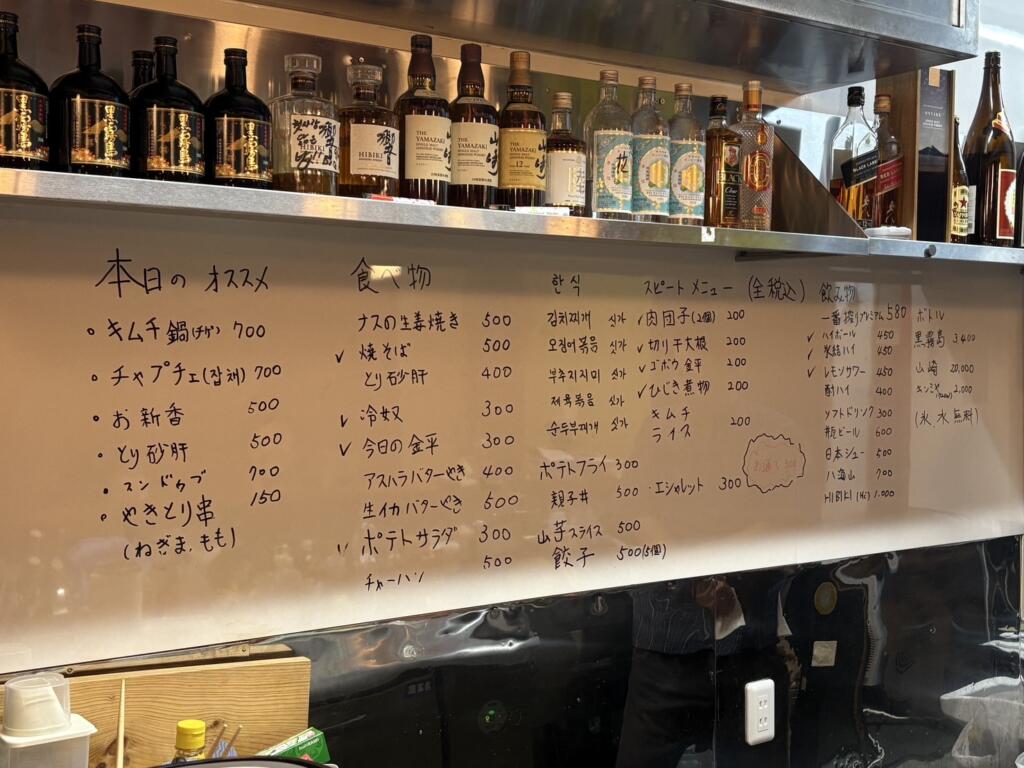 黒霧島
黒霧島
黒霧島
響
HIBIKI
THE YAMAZAKI
山崎
THE YAMAZAKI
山崎
花
BLACK
BLACK LABEL
RED LABEL
本日の オススメ
• キムチ鍋(チゲ) 700
• チャプチェ(잡채) 700
• お新香 500
• とり砂肝 500
• スンドゥブ 700
• やきとり串 150
(ねぎま、もも)
食べ物
ナスの生姜焼き 500
✓ 焼そば 500
とり砂肝 400
✓ 冷奴 300
✓ 今日の金平 300
アスパラバターやき 400
生イカバターやき 500
✓ ポテトサラダ 300
チャーハン 500
한식
김치찌개 싯가
오징어볶음 싯가
부추지지미 싯가
제육볶음 싯가
순두부찌개 싯가
ポテトフライ 300
親子丼 500
山芋スライス 500
餃子 500(5個)
スピートメニュー (全税込)
✓ 肉団子(2個) 200
✓ 切り干大根 200
✓ ゴボウ金平 200
✓ ひじき煮物 200
キムチ
ライス 200
お通し 300
・エシャレット 300
飲み物
一番搾りプレミアム 580
✓ ハイボール 450
✓ 氷結ハイ 450
✓ レモンサワー 450
酎ハイ 400
ソフトドリンク 300
瓶ビール 600
日本シュー 500
八海山 700
HIBIKI (Hi) 1.000
ボトル
黒霧島 3,400
山崎 20,000
キンミヤ 2,000
(氷、水 無料)